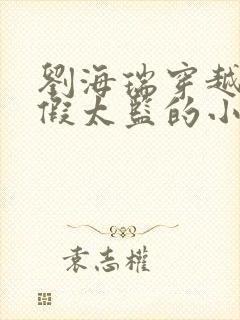 劉海瑞穿越
假太監的小
袁志權